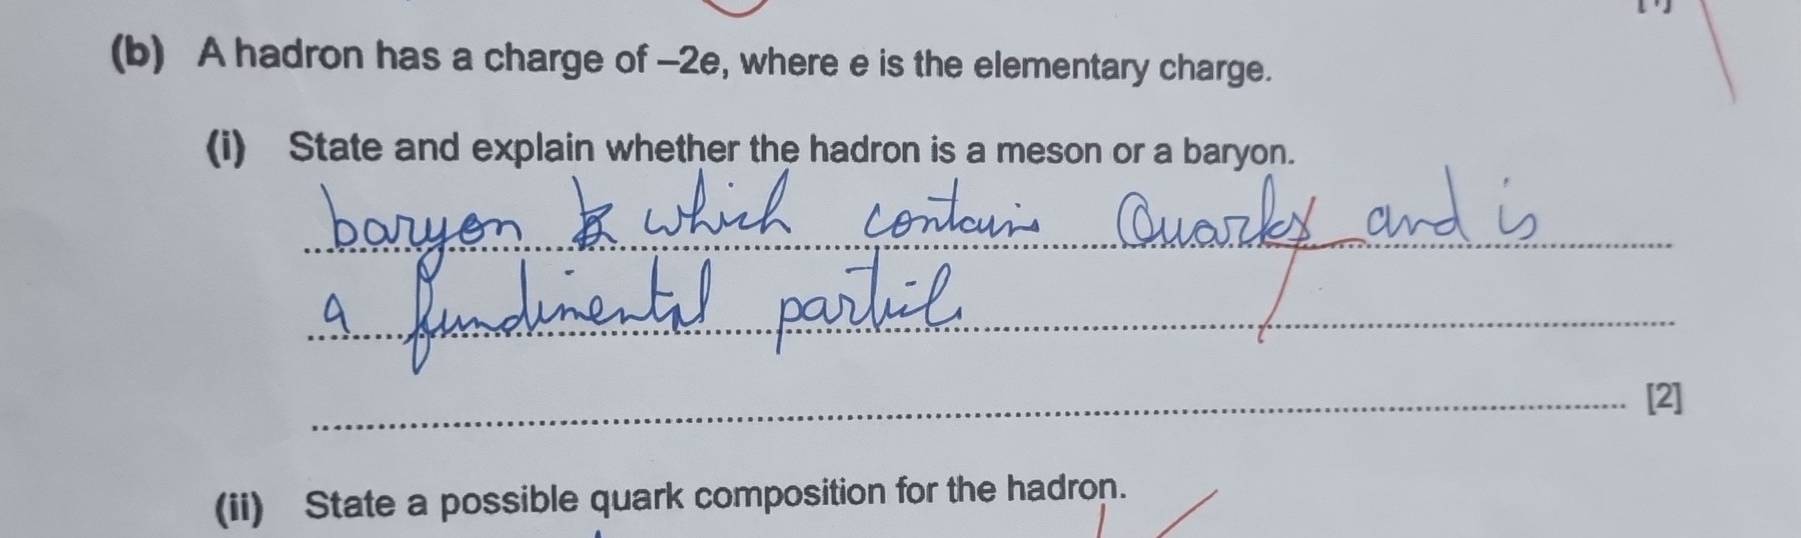 (b) A hadron has a charge of –2e, where e is the elementary charge.
(i) State and explain whether the hadron is a meson or a baryon.
baryon which contains Quarks and is
a fundimental particl
[2]
(ii) State a possible quark composition for the hadron.